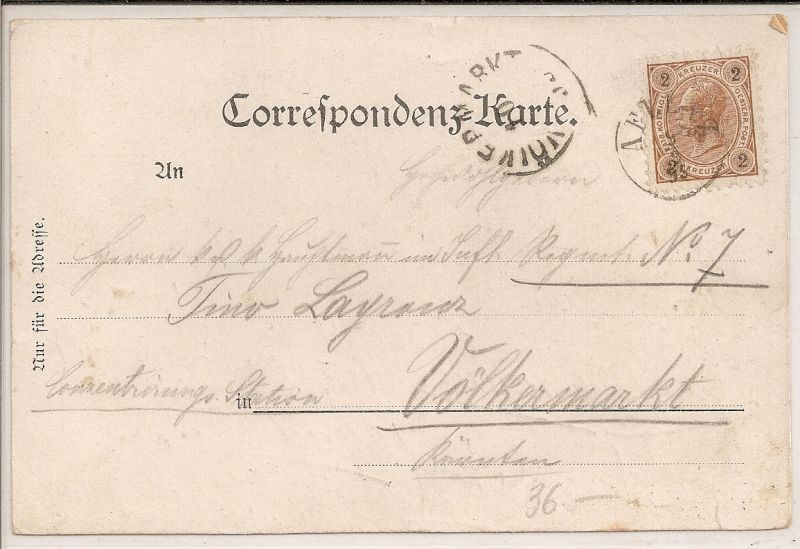 Correspondenz-Karte.
VÖLKERMARKT
2 KREUZER 2
2 KREUZER 2
An
Hochwohlgeboren
Herrn k. u. k. Hauptmann im Inft. Regmt. No. 7
Tino Lagrenz
Conzentrirungs-Station
in Völkermarkt
Kärnten
36 —
Nur für die Adresse.